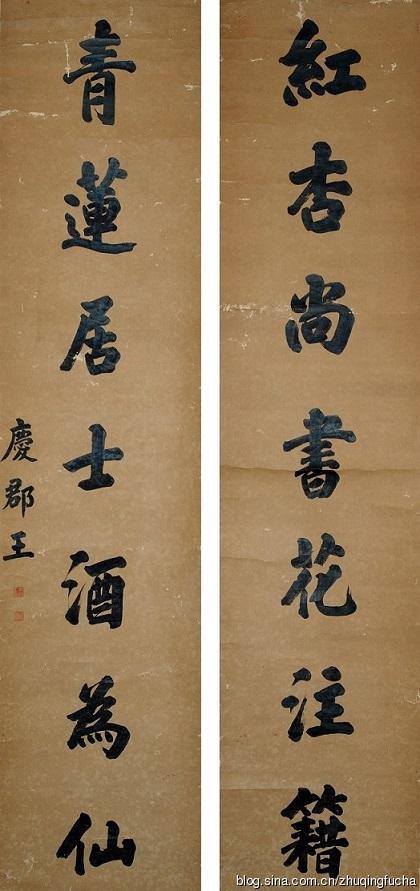 紅杏尚書花注籍
青蓮居士酒為仙
慶郡王
blog.sina.com.cn/zhuqingfucha